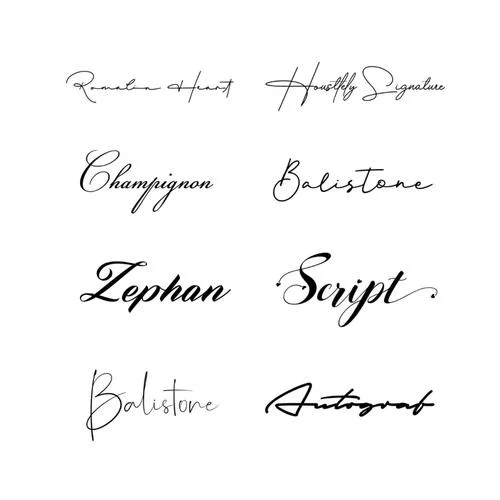 Romatia Heart
Houstlefy Signature
Champignon
Balistone
Zephan
Script
Balistone
Autograf